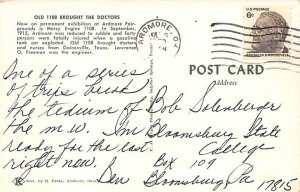 OLD 1108 BROUGHT THE DOCTORS
Now on permanent exhibition at Ardmore Fair-
grounds is Mercy Engine 1108. In September,
1915, Ardmore was reduced to rubble and forty
persons were fatally injured when a gasoline
tank car exploded. Old 1108 brought doctors
and nurses from Gainesville, Texas. Lawrence
O. Freeman was the engineer.
ARDMORE OK
U.S. POSTAGE
6¢
FRANKLIN D. ROOSEVELT
POST CARD
Address
One of a series
of trips to break
the tedium of
the m.w. I'm
ready for the last
right now.
Ben
Bob Solenberger
Bloomsburg State
College
Box 109
Bloomsburg Pa
17815